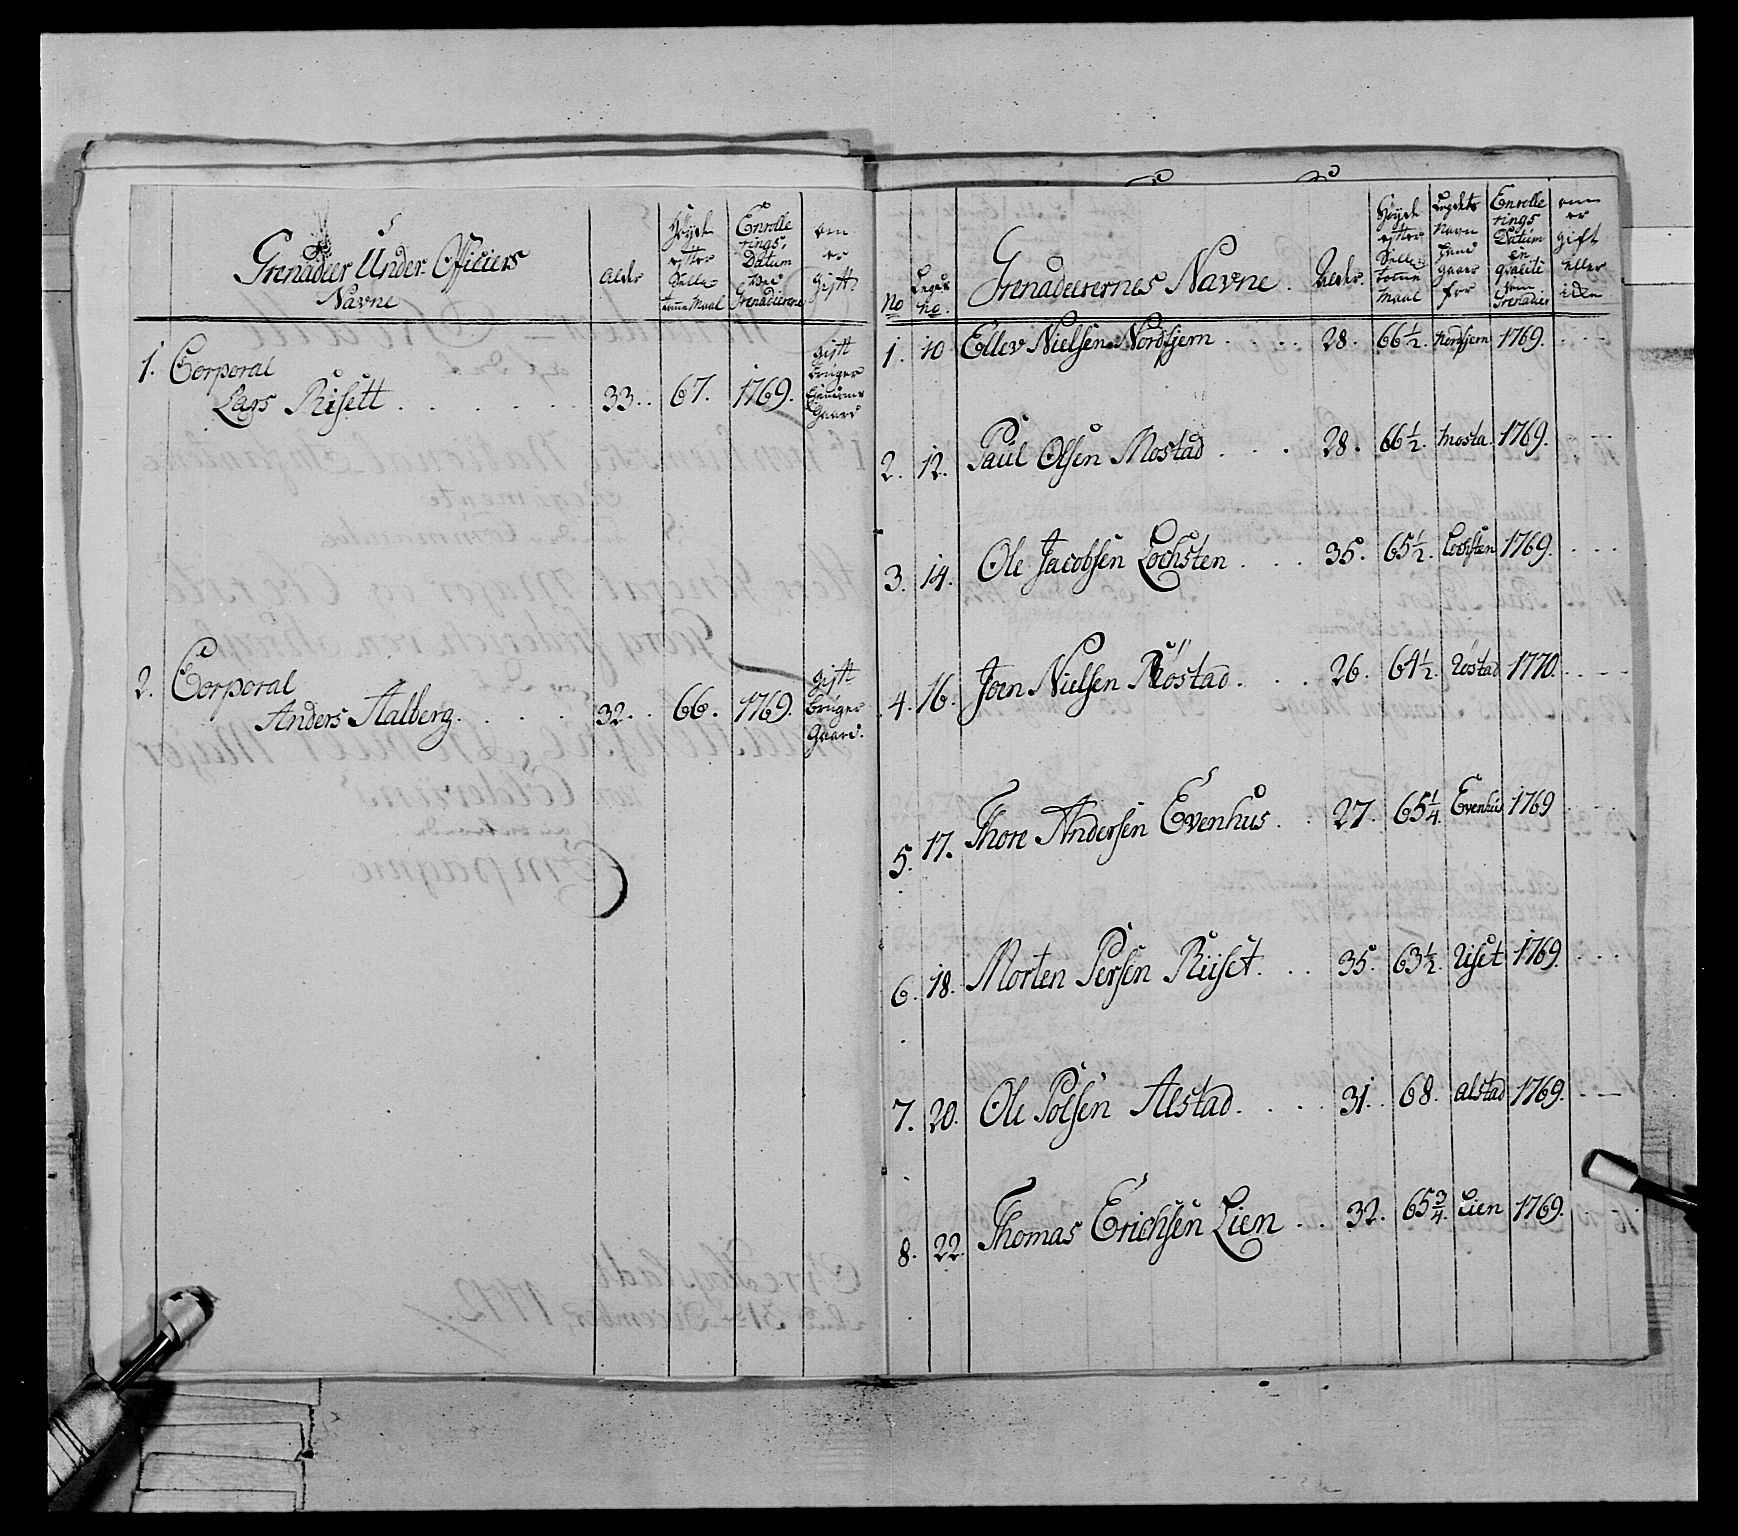 Grenadeer Under Officiers
Navne
Alder
Høyde
efter
Sella
tomme Maal
Enrolle
rings
Datum
ved
Grenadiererne
om
er
gift
1. Corporal
Lars Risett 33. 67. 1769.
gift
bruger
Gaard
2. Corporal
Anders Aalberg. 32. 66. 1769.
gift
bruger
Gaard.
No
Legds
No.
Grenadeerernes Navne.
Alder.
Høyde
efter
Sella
tomme
Maal
Legdets
Navn
hand
gaaer
for
Enrolle
rings
Datum
en
qvalité
som
Grenadier
om
er
gift
eller
iden
1. 10. Ellev Nielsen Nordfjern 28. 66½. Nordfjern 1769.
2. 12. Paul Olsen Mostad 28. 66½. Mosta. 1769.
3. 14. Ole Jacobsen Lochsten 35. 65½. Lochsten 1769.
4. 16. Joen Nielsen Röstad 26. 64½. Röstad 1770.
5. 17. Thore Andersen Evenhus 27. 65¼. Evenhus 1769
6. 18. Morten Persen Riiset 35. 63½. Riset 1769.
7. 20. Ole Polsen Alstad 31. 68. Alstad 1769.
8. 22. Thomas Erichsen Lien 32. 65¾. Lien 1769.